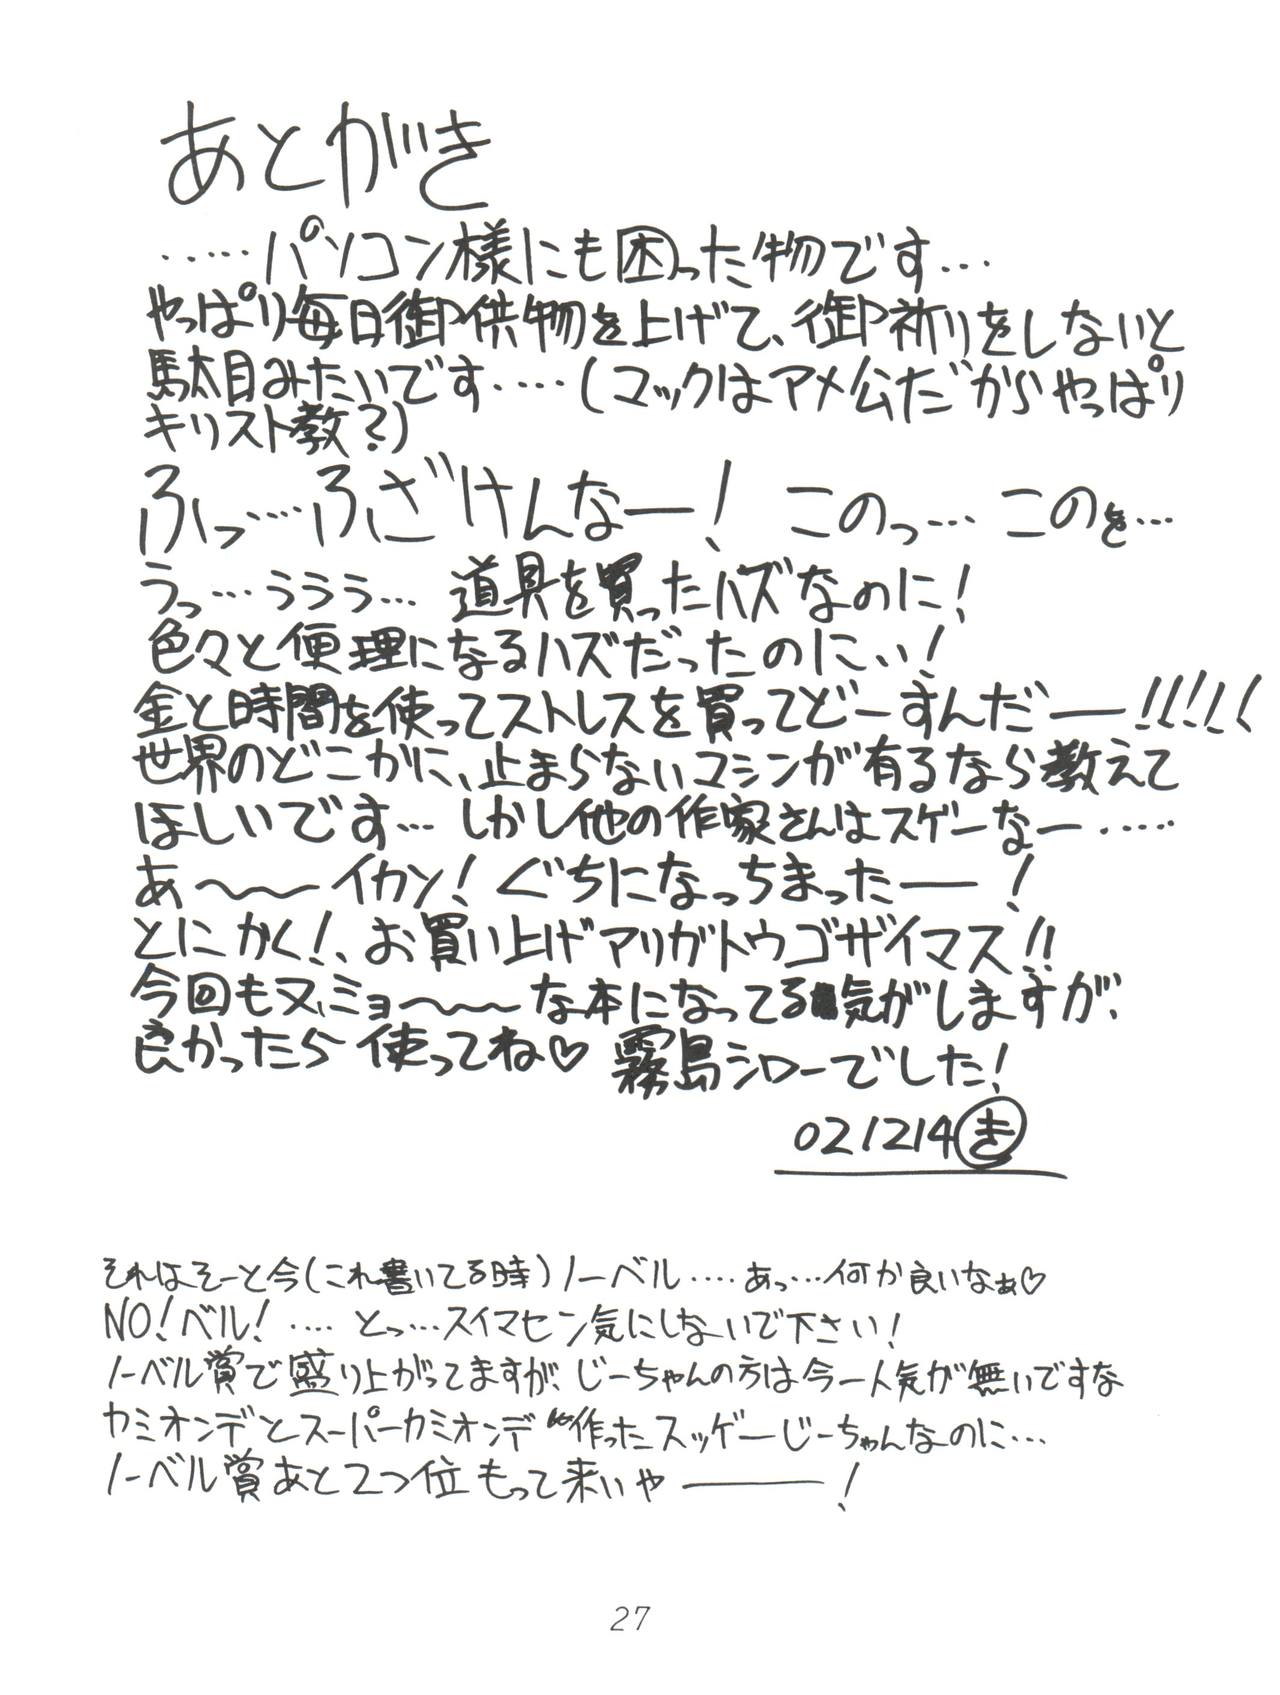 あとがき
……パソコン様にも困った物です…
やっぱり毎日御供物を上げて、御祈りをしないと
駄目みたいです‥‥(マックはアメ公だからやっぱり
キリスト教?)
ふっ……ふざけんなー! このっ… このぉ…
うっ…ううう… 道具を買ったハズなのに!
色々と便理になるハズだったのにぃ!
金と時間を使ってストレスを買ってどーすんだー!!!!!
世界のどこかに、止まらないマシンが有るなら教えて
ほしいです… しかし他の作家さんはスゲーなー‥‥‥
あ〜〜イカン! ぐちになっちまったー!
とにかく!、お買い上げアリガトウゴザイマス!!
今回も又、ミョ〜〜な本になってる気がしますが、
良かったら使ってね♡ 霧島シローでした!
021214き
それはそーと今(これ書いてる時)ノーベル‥‥あっ…何か良いなぁ♡
NO!ベル!‥‥ とっ…スイマセン気にしないで下さい!
ノーベル賞で盛り上がってますが、じーちゃんの方は今一人気が無いですな
カミオンデとスーパーカミオンデ作ったスッゲーじーちゃんなのに…
ノーベル賞あと2つ位もって来いやー!
27